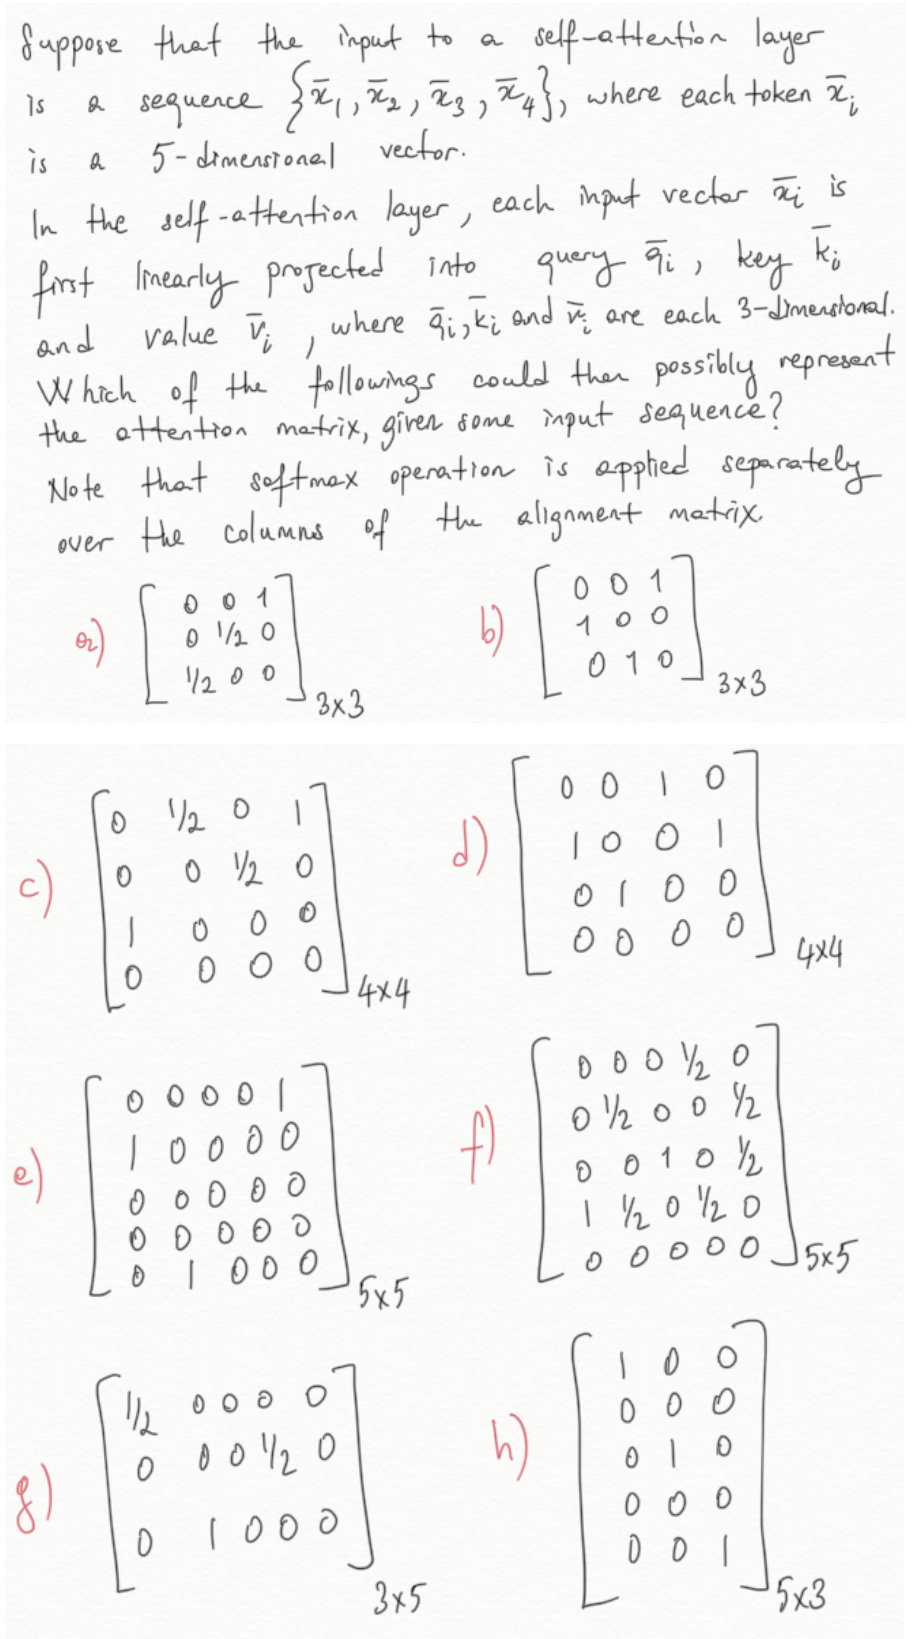 Suppose that the input to a self-attention layer
is a sequence {x̄₁, x̄₂, x̄₃, x̄₄}, where each token x̄ᵢ
is a 5-dimensional vector.
In the self-attention layer, each input vector x̄ᵢ is
first linearly projected into query q̄ᵢ, key k̄ᵢ
and value v̄ᵢ, where q̄ᵢ, k̄ᵢ and v̄ᵢ are each 3-dimensional.
Which of the followings could then possibly represent
the attention matrix, given some input sequence?
Note that softmax operation is applied separately
over the columns of the alignment matrix.
a)
0 0 1
0 1/2 0
1/2 0 0
3×3
b)
0 0 1
1 0 0
0 1 0
3×3
c)
0 1/2 0 1
0 0 1/2 0
1 0 0 0
0 0 0 0
4×4
d)
0 0 1 0
1 0 0 1
0 1 0 0
0 0 0 0
4×4
e)
0 0 0 0 1
1 0 0 0 0
0 0 0 0 0
0 0 0 0 0
0 1 0 0 0
5×5
f)
0 0 0 1/2 0
0 1/2 0 0 1/2
0 0 1 0 1/2
1 1/2 0 1/2 0
0 0 0 0 0
5×5
g)
1/2 0 0 0 0
0 0 0 1/2 0
0 1 0 0 0
3×5
h)
1 0 0
0 0 0
0 1 0
0 0 0
0 0 1
5×3